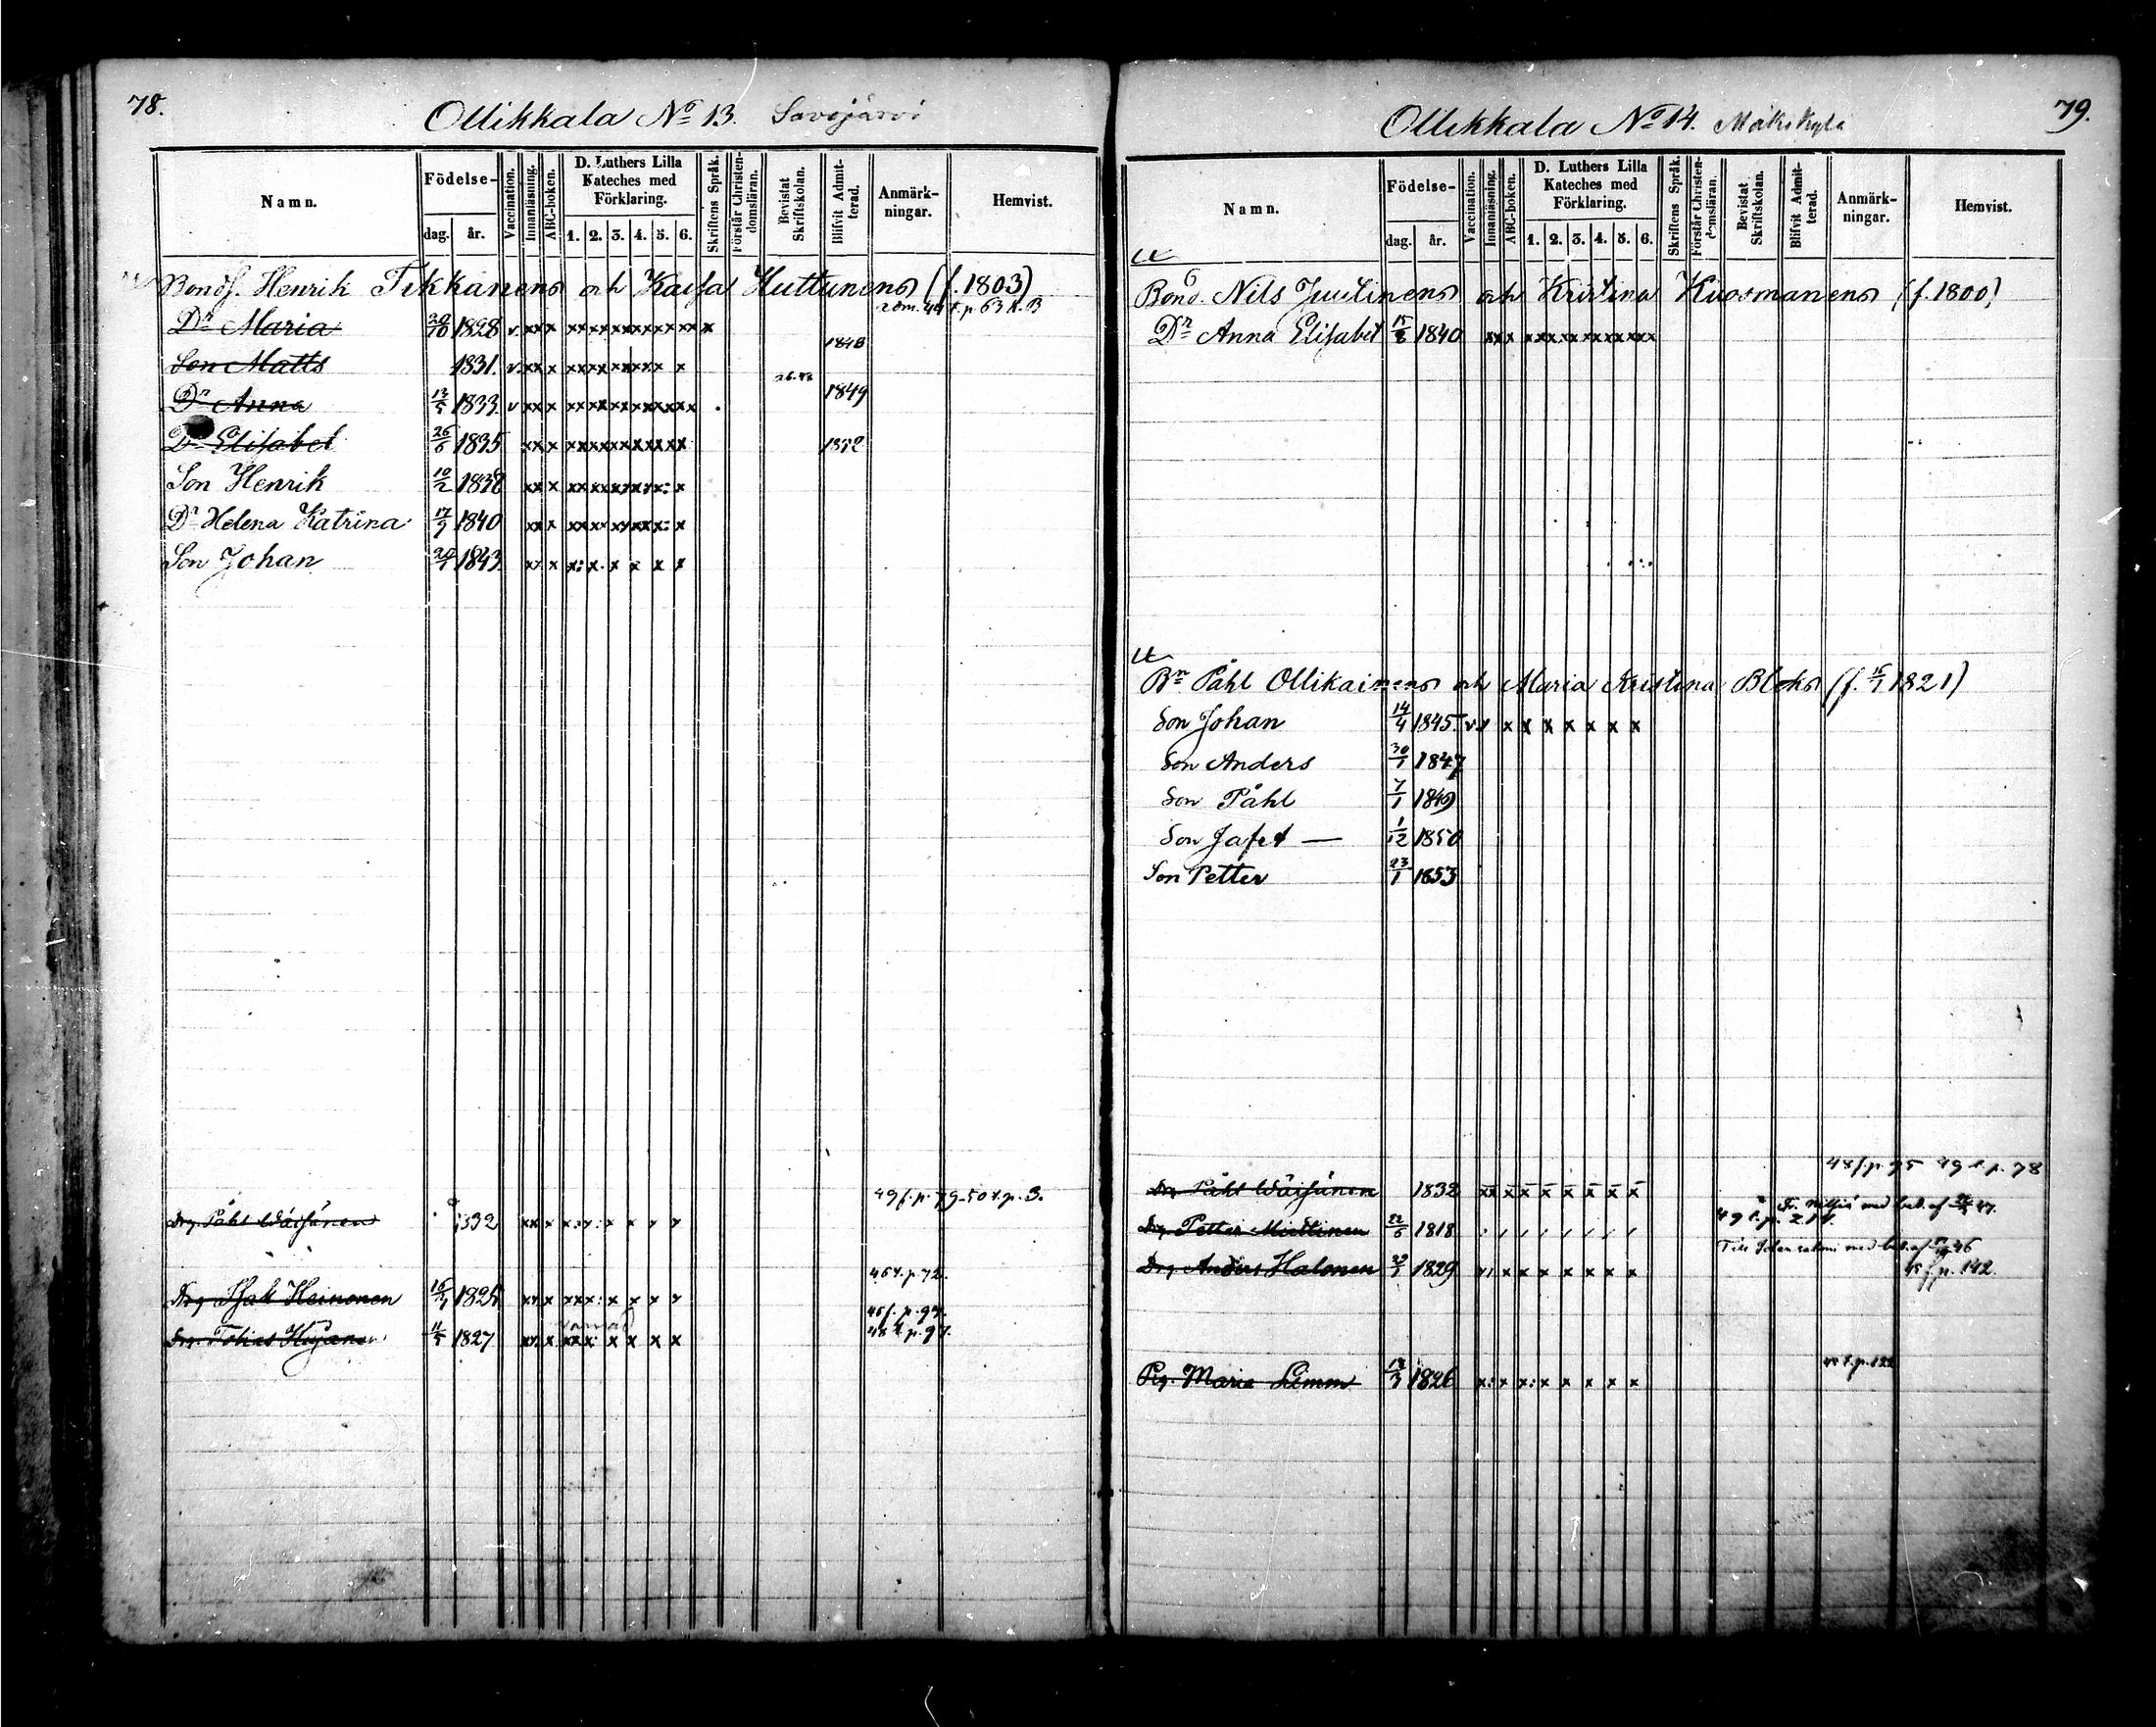 78.
Ollikkala No 13. Savojärvi
Namn. Födelse- dag. år. Vaccination. Innanläsning. ABC-boken. D. Luthers Lilla Kateches med Förklaring. 1. 2. 3. 4. 5. 6. Skriftens Språk. Förstår Christendomsläran. Bevistat Skriftskolan. Blifvit Admitterad. Anmärkningar. Hemvist.
Bondf. Henrik Tikkanens och Kaisa Huttunens (f. 1803)
Dr Maria 20/10 1828 v xxx xxxxxxxxxxxx x p. 63
1848
Son Matts 1831. v. xx x xxxx xxxxx x
Dr Anna 13/5 1833 v xx x xxxxxxxxxxxx 1849
Dr Elisabet 26/6 1835 xx x xxxxxxxxxxxx 1852
Son Henrik 10/2 1838 xx x xxxxxxxxx: x
Dr Helena Katrina 17/9 1840 xx x
Son Johan 1843 xx x x: x. x x x x
49 f. p. 79 50 t. p. 3.
Drg. Påhl Wäisänen 1832 xx x
45 t. p. 72.
Drg Isak Heinonen 1825 xx x xxx: x x x
45 f. p. 97.
48 t. p. 97.
Drg. Tobias 11/5 1827 xx. x xxx: x x x x
79.
Ollikkala No 14. Mäkikylä
Namn. Födelse- dag. år. Vaccination. Innanläsning. ABC-boken. D. Luthers Lilla Kateches med Förklaring. 1. 2. 3. 4. 5. 6. Skriftens Språk. Förstår Christendomsläran. Bevistat Skriftskolan. Blifvit Admitterad. Anmärkningar. Hemvist.
Bond. Nils Juutinens och Kristina Kuosmanens (f. 1800)
Dr Anna Elisabet 15/8 1840 xx x xxxxxxxxxxxx
Bn Påhl Ollikainens och Maria Kristina Bloks (f. 1821)
Son Johan 14/4 1845. x x x x x x x
Son Anders 30/1 1847
Son Påhl 7/1 1849
Son Jafet — 1/12 1850
Son Petter 23/1 1853
48 f. p. 75 49 t. p. 78
Drg Påhl Wäisänen 1832 xx x x x x x x x
Drg. Petter Miettinen 22/6 1818
Drg. Anders Halonen 1829 x x x x x x x p. 142.
Pg. Maria Limm 1826 x: x x: x x x x x